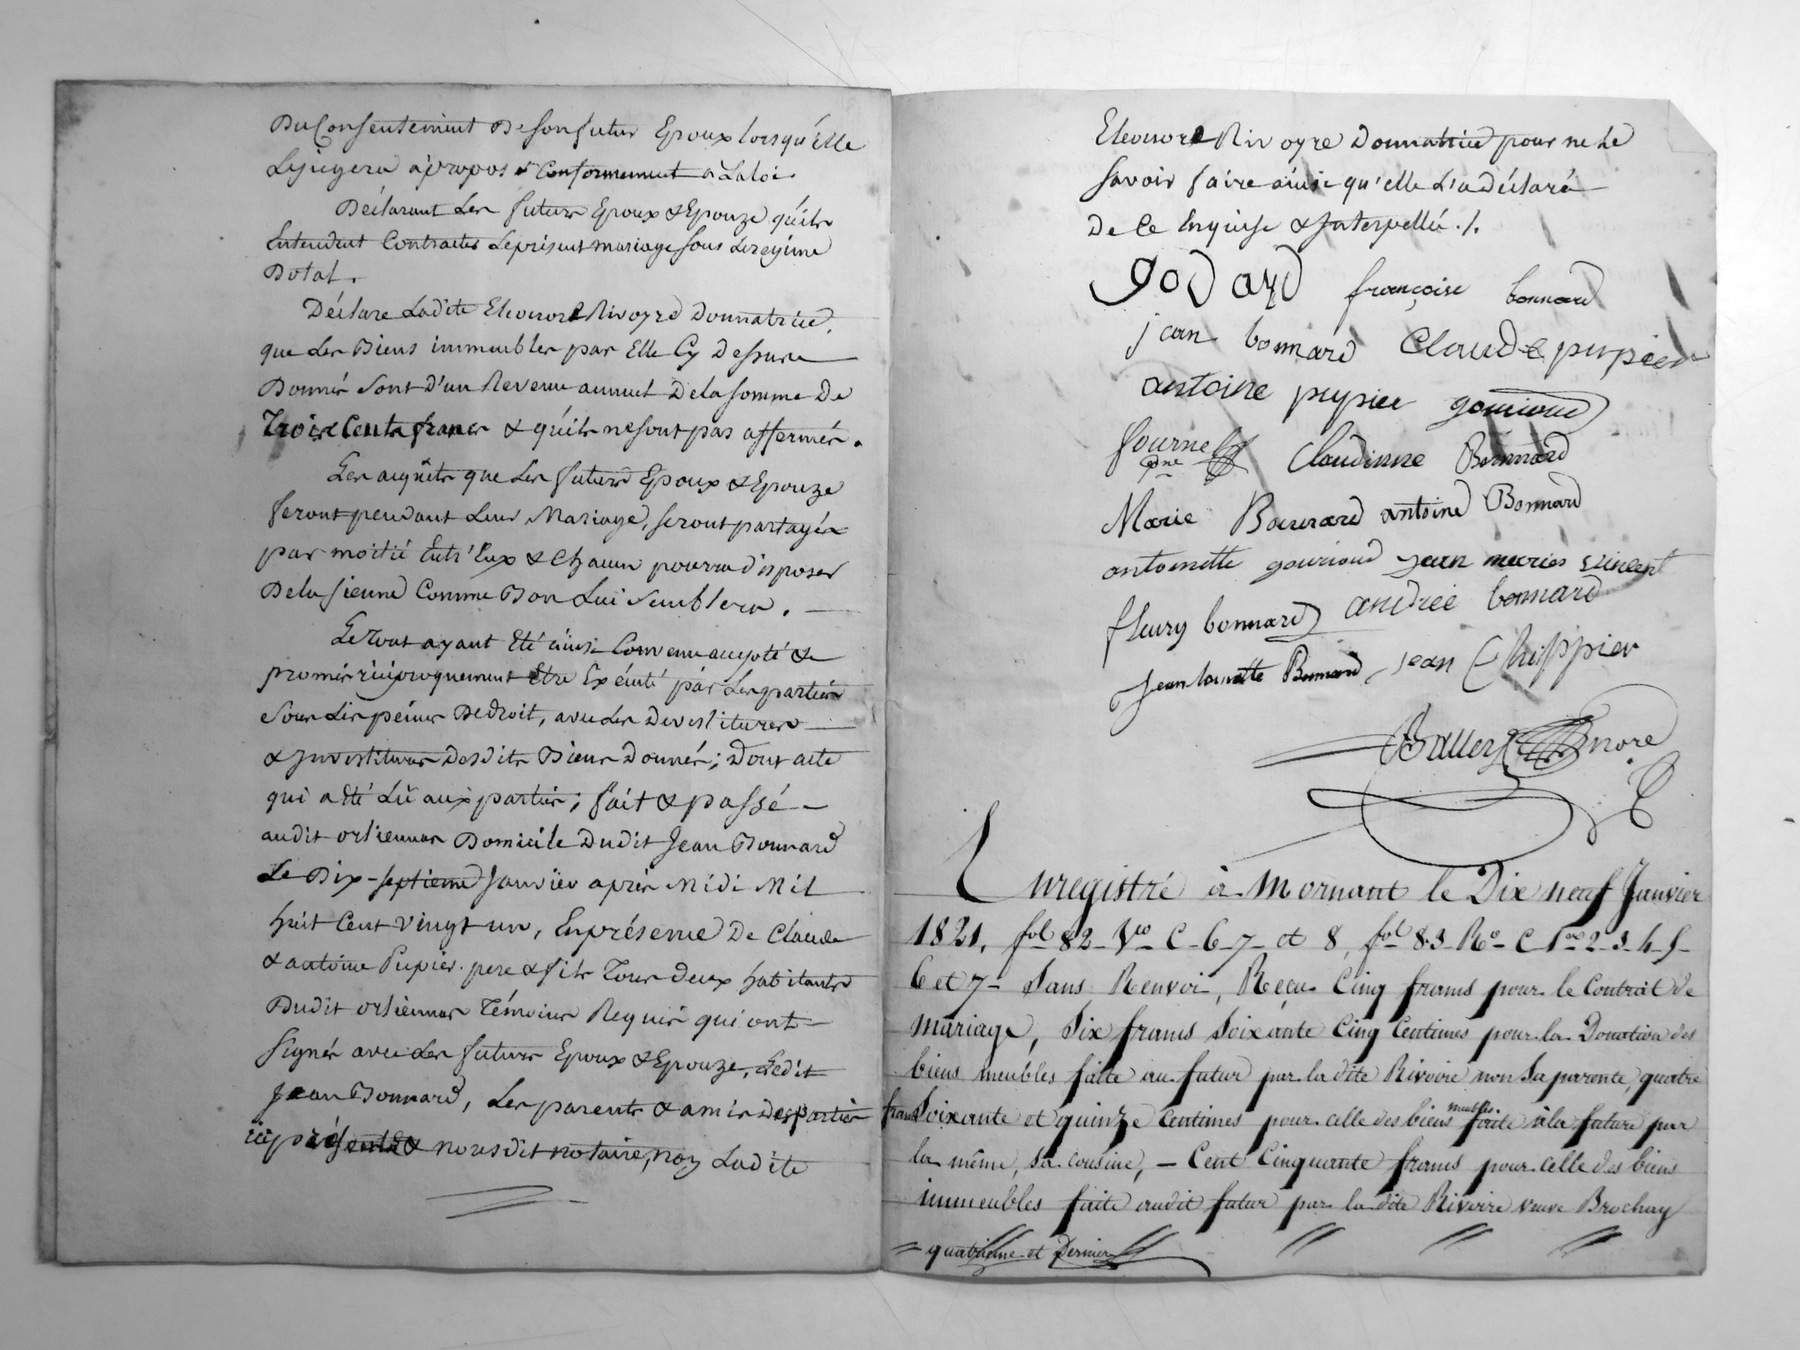 Du Consentement De son futur Epoux lorsqu'Elle
Le jugera à propos & Conformement à La loi.
Déclarant Les futurs Epoux & Epouze qu'ils
Entendent Contracter Le présent mariage sous Le regime
Dotal.
Déclare Ladite Eleonore Rivoyre Donnatrice,
que Les Biens immeubles par Elle Cy Dessus
Donnés sont D'un Revenu annuel De la somme De
Trois Cents francs & qu'ils ne sont pas affermés.
Les acquêts que Les futurs Epoux & Epouze
feront pendant Leur Mariage, seront partagés
par moitié Entr'Eux & Chacun pourra disposer
De la sienne Comme Bon Lui Semblera.
Le Tout ayant Eté ainsi Convenu accepté &
promis réciproquement Etre Exécuté par Les parties
Sous Les peines De droit, avec Les Devestitures
& Investitures Desdits Biens Donnés; Dont acte
qui a été Lû aux parties; fait & passé
audit orliennas Domicile Dudit Jean Bonnard
Le Dix-septieme Janvier après Midi Mil
huit Cent vingt un, En présence De Claude
& antoine Pupier pere & fils Tous deux habitants
Dudit orliennas Témoins Requis qui ont
Signés avec Les futurs Epoux & Epouze, Ledit
Jean Bonnard, Les parents & amis des parties
ici présents & nous dit notaire, non Ladite
Eleonore Rivoyre Donnatrice pour ne Le
Savoir faire ainsi qu'elle L'a déclaré
De Ce Enquise & Interpellée ./.
godard françoise bonnard
jean bonnard Claude pupier
antoine pupier gourioud
fournel Claudinne Bonnard
Marie Bonnard antoine Bonnard
antoinette gourioud jean marie vincent
fleury bonnard andrée bonnard
Jean Bonnard, jean Chuppier
Balley nore
Enregistré à Mornant le Dix neuf Janvier
1821, fol 82 Vo C 6 7 et 8, fol 83 Ro C 1ere 2 3 4 5
6 et 7 Sans Renvoi, Reçu Cinq francs pour le Contrat de
mariage, Six francs Soixante Cinq Centimes pour la Donation des
biens meubles faite au futur par la dite Rivoire non Sa parente, quatre
francs Soixante et quinze Centimes pour celle des biens meubles faite à la future par
la même, sa cousine, — Cent Cinquante francs pour celle des biens
immeubles faite audit futur par la dite Rivoire veuve Brochay
= quatrieme et Dernier